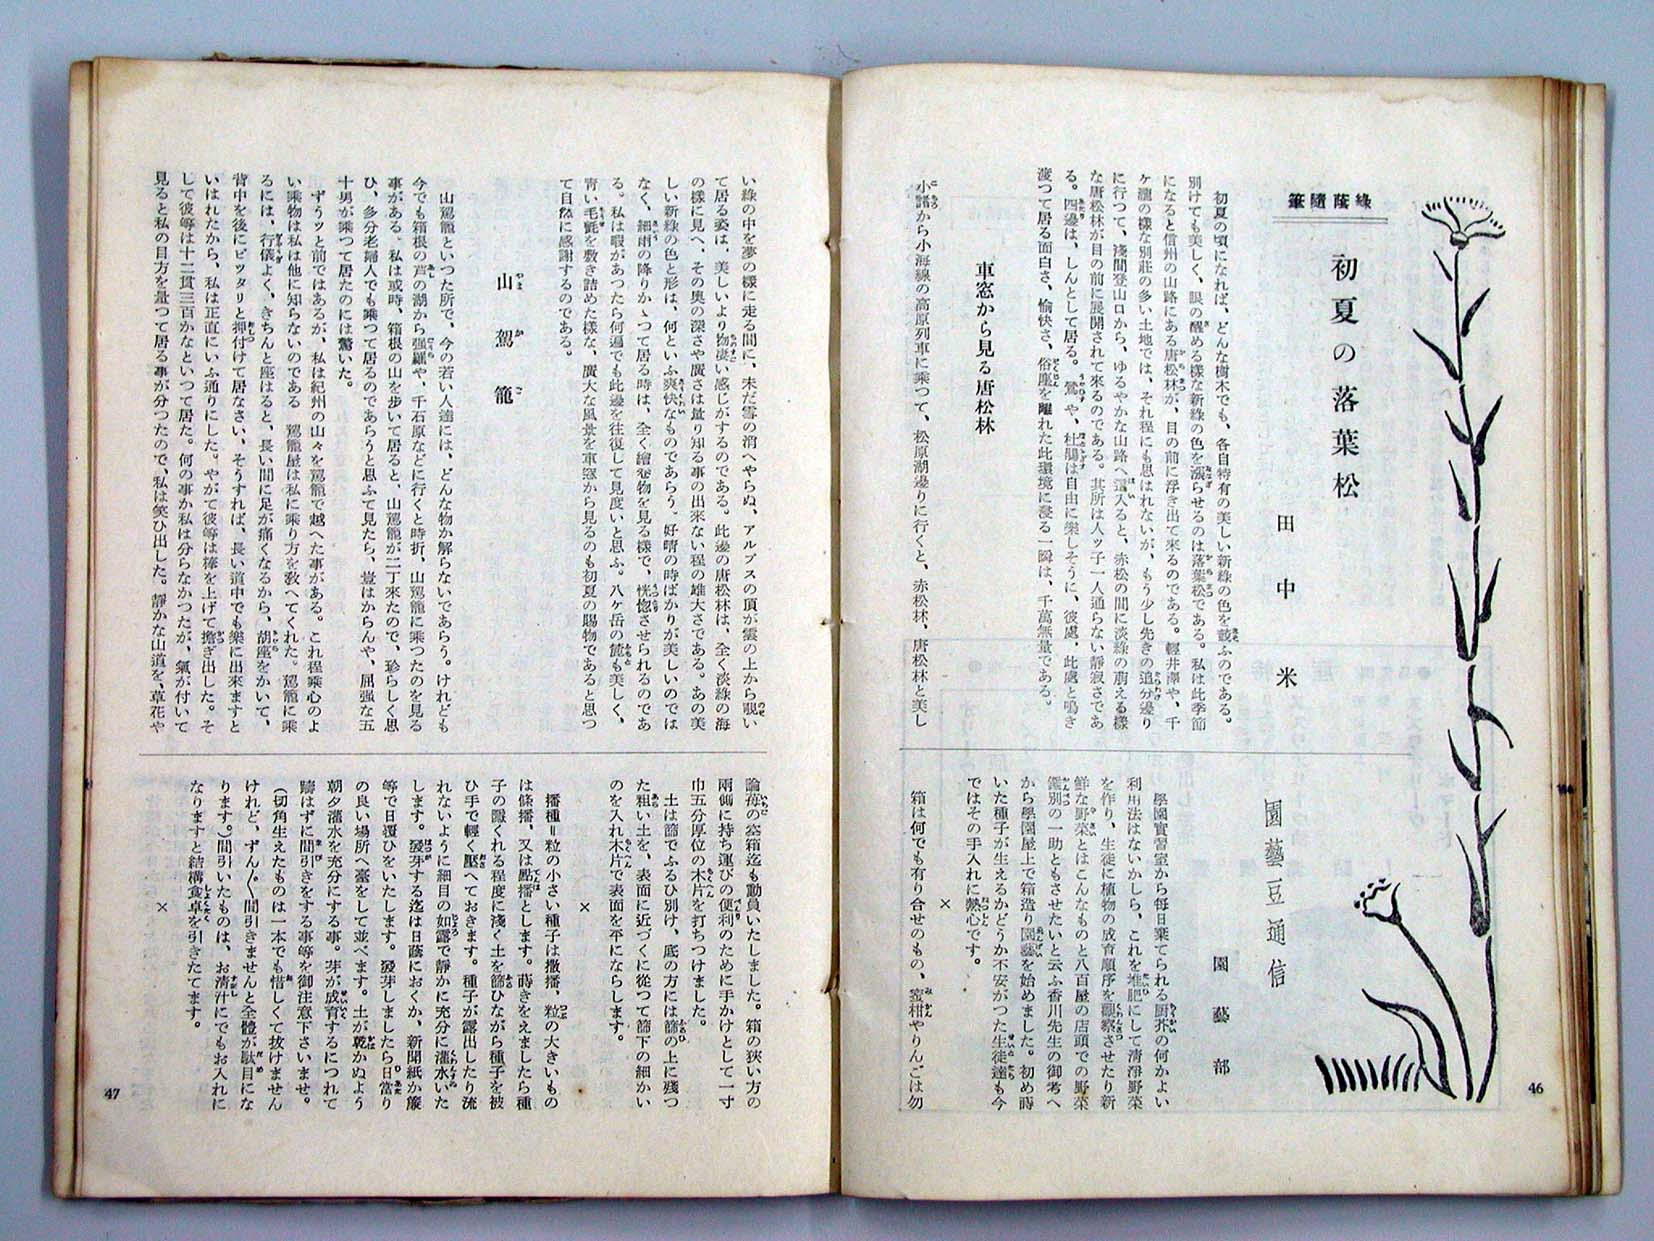 綠蔭隨筆
初夏の落葉松
田中米
初夏の頃になれば、どんな樹木でも、各自特有の美しい新綠の色を競ふのである。
別けても美しく、眼の醒める樣な新綠の色を漲らせるのは落葉松である。私は此季節
になると信州の山路にある唐松林が、目の前に浮き出て來るのである。輕井澤や、千
ヶ瀧の樣な別莊の多い土地では、それ程にも思はれないが、もう少し先きの追分邊り
に行つて、淺間登山口から、ゆるやかな山路へ這入ると、赤松の間に淡綠の萠える樣
な唐松林が目の前に展開されて來るのである。其所は人ッ子一人通らない靜寂さであ
る。四邊は、しんとして居る。鶯や、杜鵑は自由に樂しそうに、彼處、此處と鳴き
渡つて居る面白さ、愉快さ、俗塵を離れた此環境に浸る一瞬は、千萬無量である。
車窓から見る唐松林
小諸から小海線の高原列車に乘つて、松原湖邊りに行くと、赤松林、唐松林と美し
い綠の中を夢の樣に走る間に、未だ雪の消へやらぬ、アルプスの頂が雲の上から覗い
て居る姿は、美しいより物凄い感じがするのである。此邊の唐松林は、全く淡綠の海
の樣に見へ、その奧の深さや廣さは量り知る事の出來ない程の雄大さである。あの美
しい新綠の色と形は、何といふ爽快なものであらう。好晴の時ばかりが美しいのでは
なく、細雨の降りかゝつて居る時は、全く繪卷物を見る樣で、恍惚させられるのであ
る。私は暇があつたら何遍でも此邊を往復して見度いと思ふ。八ヶ岳の麓も美しく、
靑い毛氈を敷き詰めた樣な、廣大な風景を車窓から見るのも初夏の賜物であると思つ
て自然に感謝するのである。
山駕籠
山駕籠といつた所で、今の若い人達には、どんな物か解らないであらう。けれども
今でも箱根の芦の湖から强羅や、千石原などに行くと時折、山駕籠に乘つたのを見る
事がある。私は或時、箱根の山を步いて居ると、山駕籠が二丁來たので、珍らしく思
ひ、多分老婦人でも乘つて居るのであらうと思ふて見たら、豈はからんや、屈强な五
十男が乘つて居たのには驚いた。
ずうッと前ではあるが、私は紀州の山々を駕籠で越へた事がある。これ程乘心のよ
い乘物は私は他に知らないのである 駕籠屋は私に乘り方を敎へてくれた。駕籠に乘
るには、行儀よく、きちんと座はると、長い間に足が痛くなるから、胡座をかいて、
背中を後にピツタリと押付けて居なさい、そうすれば、長い道中でも樂に出來ますと
いはれたから、私は正直にいふ通りにした。やがて彼等は棒を上げて擔ぎ出した。そ
して彼等は十二貫三百かなといつて居た。何の事か私は分らなかつたが、氣が付いて
見ると私の目方を量つて居る事が分つたので、私は笑ひ出した。靜かな山道を、草花や
園藝豆通信
園藝部
學園實習室から每日棄てられる厨芥の何かよい
利用法はないかしら、これを堆肥にして淸淨野菜
を作り、生徒に植物の成育順序を觀察させたり新
鮮な野菜とはこんなものと八百屋の店頭での野菜
鑑別の一助ともさせたいと云ふ香川先生の御考へ
から學園屋上で箱造り園藝を始めました。初め時
いた種子が生えるかどうか不安がつた生徒達も今
ではその手入れに熱心です。
×
箱は何でも有り合せのもの、蜜柑やりんごは勿
論苺の空箱迄も動員いたしました。箱の狹い方の
兩側に持ち運びの便利のために手かけとして一寸
巾五分厚位の木片を打ちつけました。
土は篩でふるひ別け、底の方には篩の上に殘つ
た粗い土を、表面に近づくに從つて篩下の細かい
のを入れ木片で表面を平にならします。
×
播種=粒の小さい種子は撒播、粒の大きいもの
は條播、又は點播とします。蒔きをえましたら種
子の隱くれる程度に淺く土を篩ひながら種子を被
ひ手で輕く壓へておきます。種子が露出したり流
れないように細目の如露で靜かに充分に灌水いた
します。發芽する迄は日蔭におくか、新聞紙か簾
等で日覆ひをいたします。發芽しましたら日當り
の良い場所へ臺をして並べます。土が乾かぬよう
朝夕灌水を充分にする事。芽が成育するにつれて
躊はずに間引きをする事等を御注意下さいませ。
(切角生えたものは一本でも惜しくて拔けません
けれど、ずん〲間引きませんと全體が駄目にな
ります。)間引いたものは、お淸汁にでもお入れに
なりますと結構食卓を引きたてます。
×
46
47